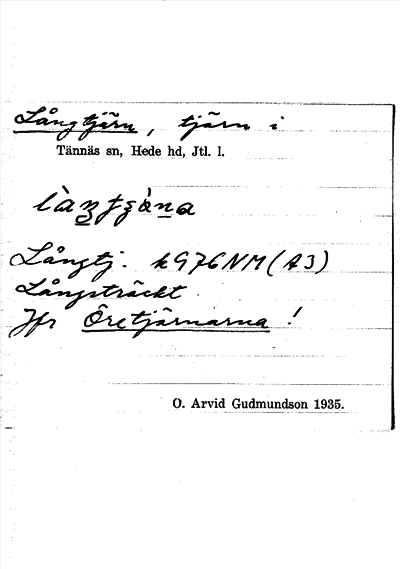 Långtjärn, tjärn i
Tännäs sn, Hede hd, Jtl. l.
Långtj. k976NM(A3)
Långsträckt
Jfr Öretjärnarna!
O. Arvid Gudmundson 1935.